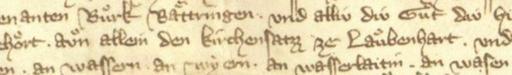 enanten Bůrk Båttringen. vnd alliv div Gůt div h
ehôrt. avn allein den kirchensatz ze Laůbenhart. vnd
en. an wassern an wyern. an wasserlaitin. an wasen